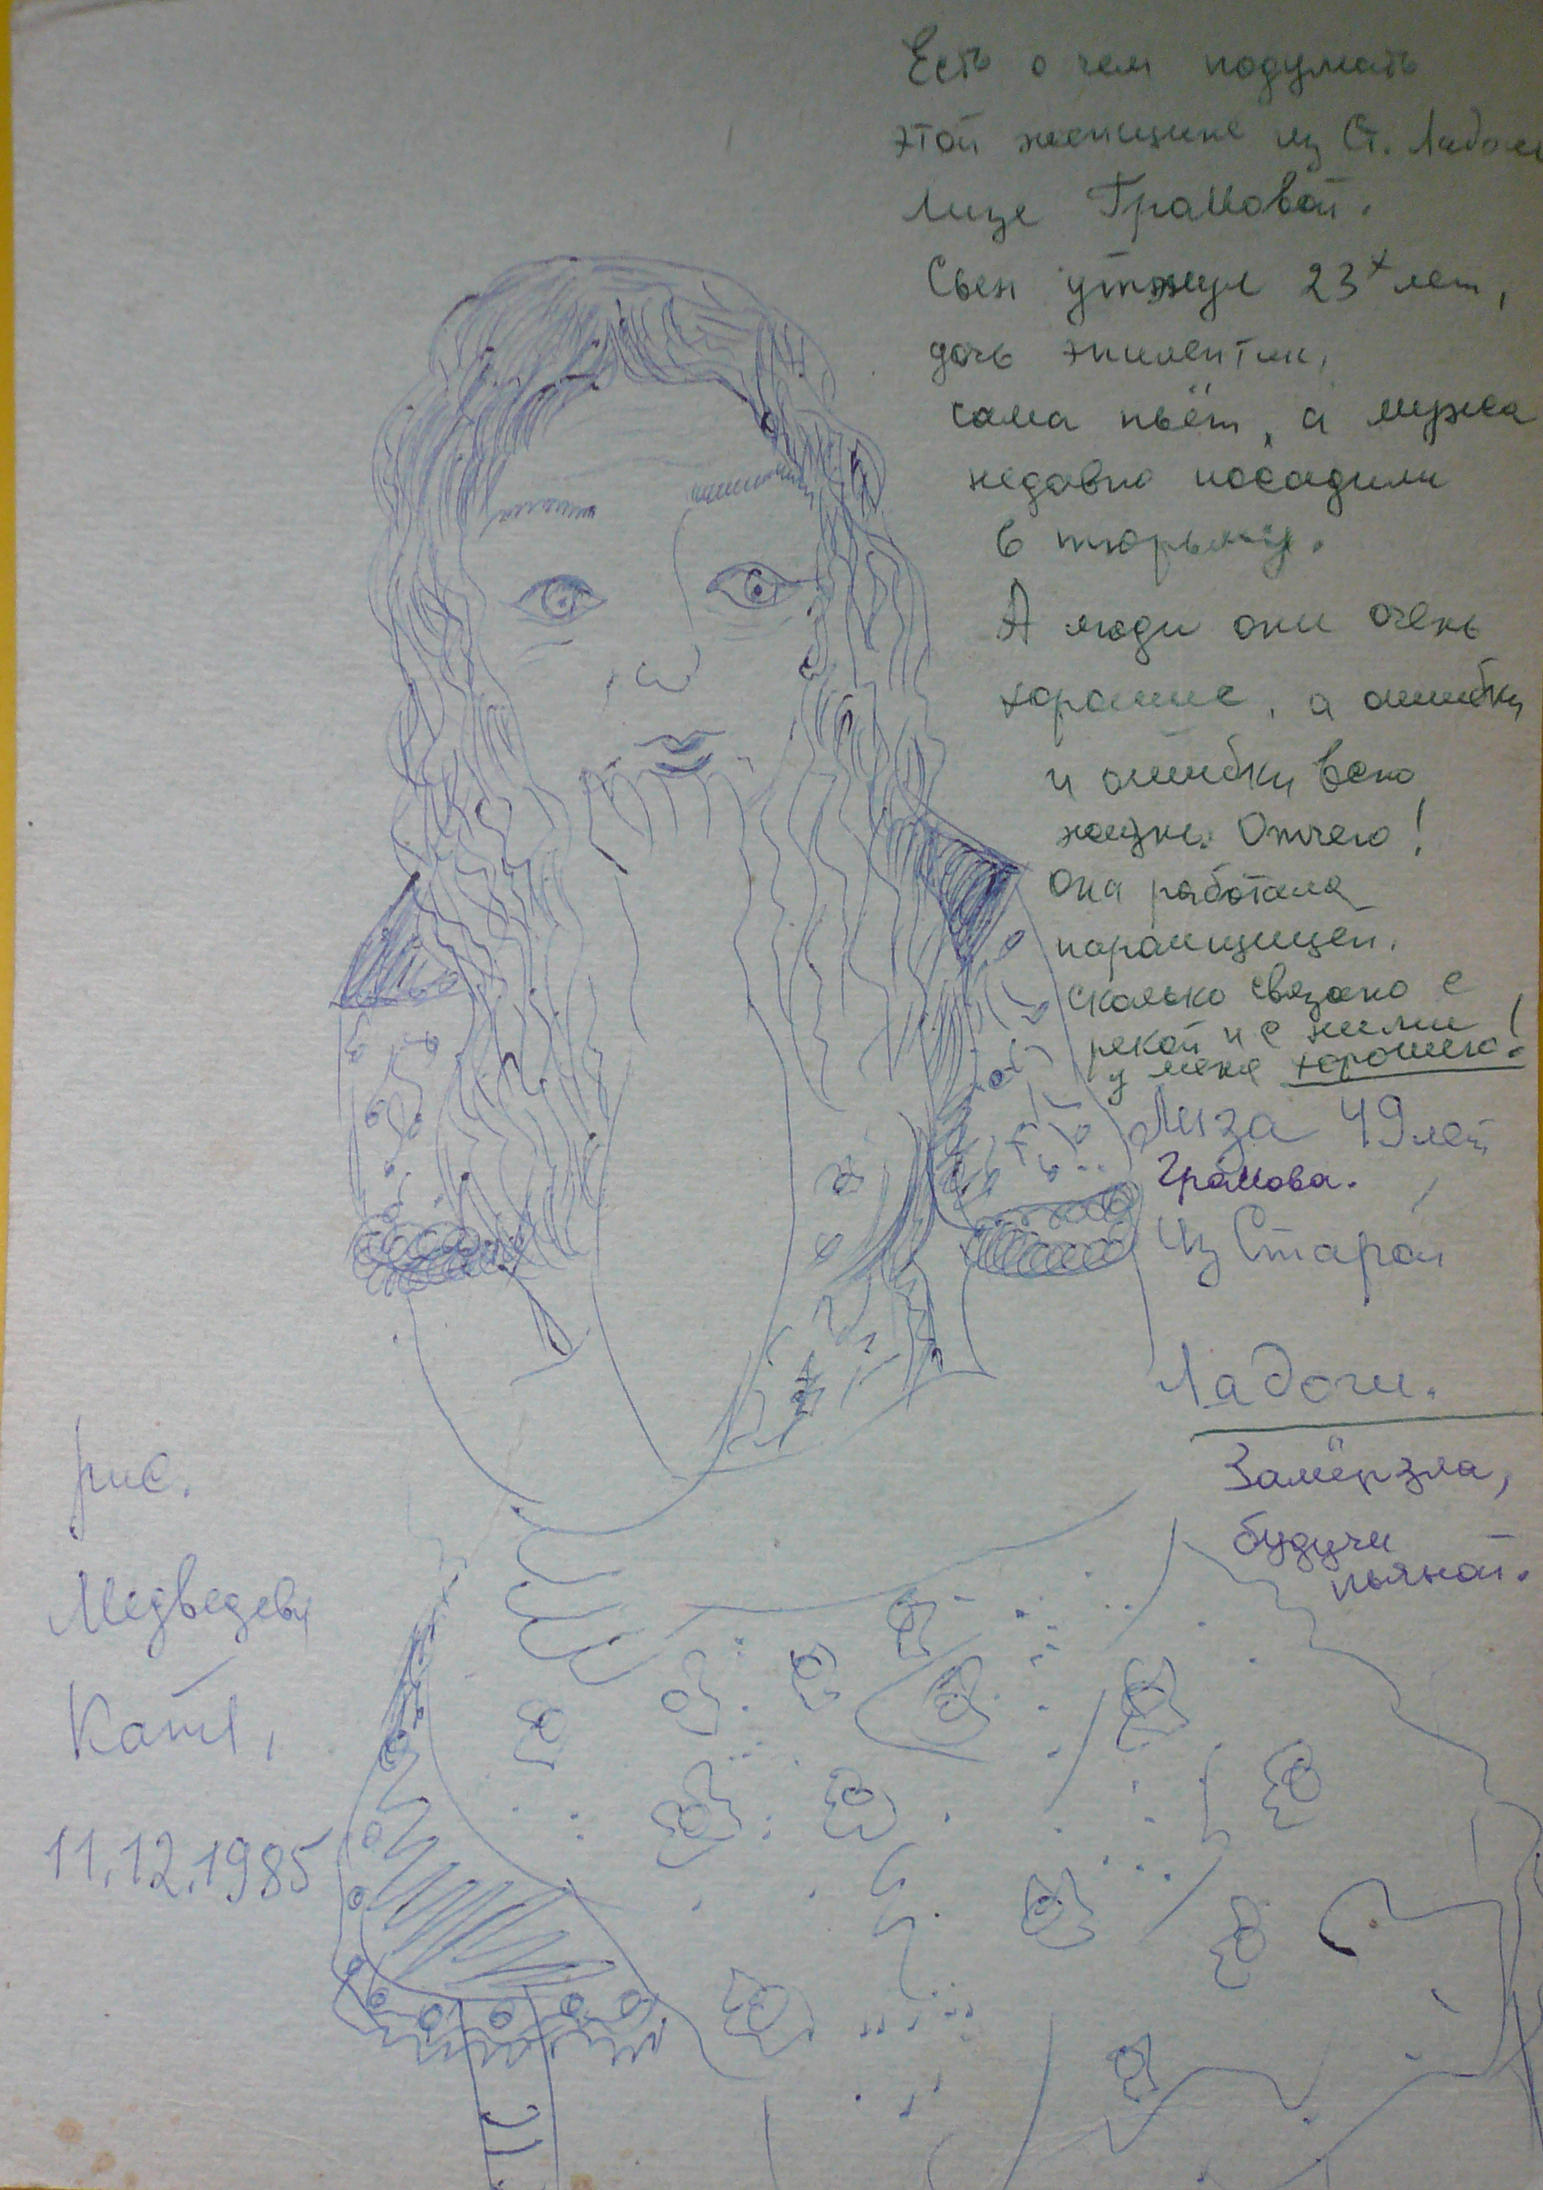 Есть о чем подумать
этой женщине из Ст. Ладоги
Лизе Грамовой.
Сын утонул 23х лет,
дочь эпилептик,
сама пьёт, а мужа
недавно посадили
в тюрьму.
А люди они очень
хорошие, а ошибки
и ошибки всю
жизнь. Отчего!
Она работала
паромщицей.
Сколько связано с
рекой и с ними
у меня хорошего!
Лиза 49 лет
Грамова.
Из Старой
Ладоги.
Замёрзла,
будучи
пьяной.
рис.
Медведевой
Кати,
11.12.1985